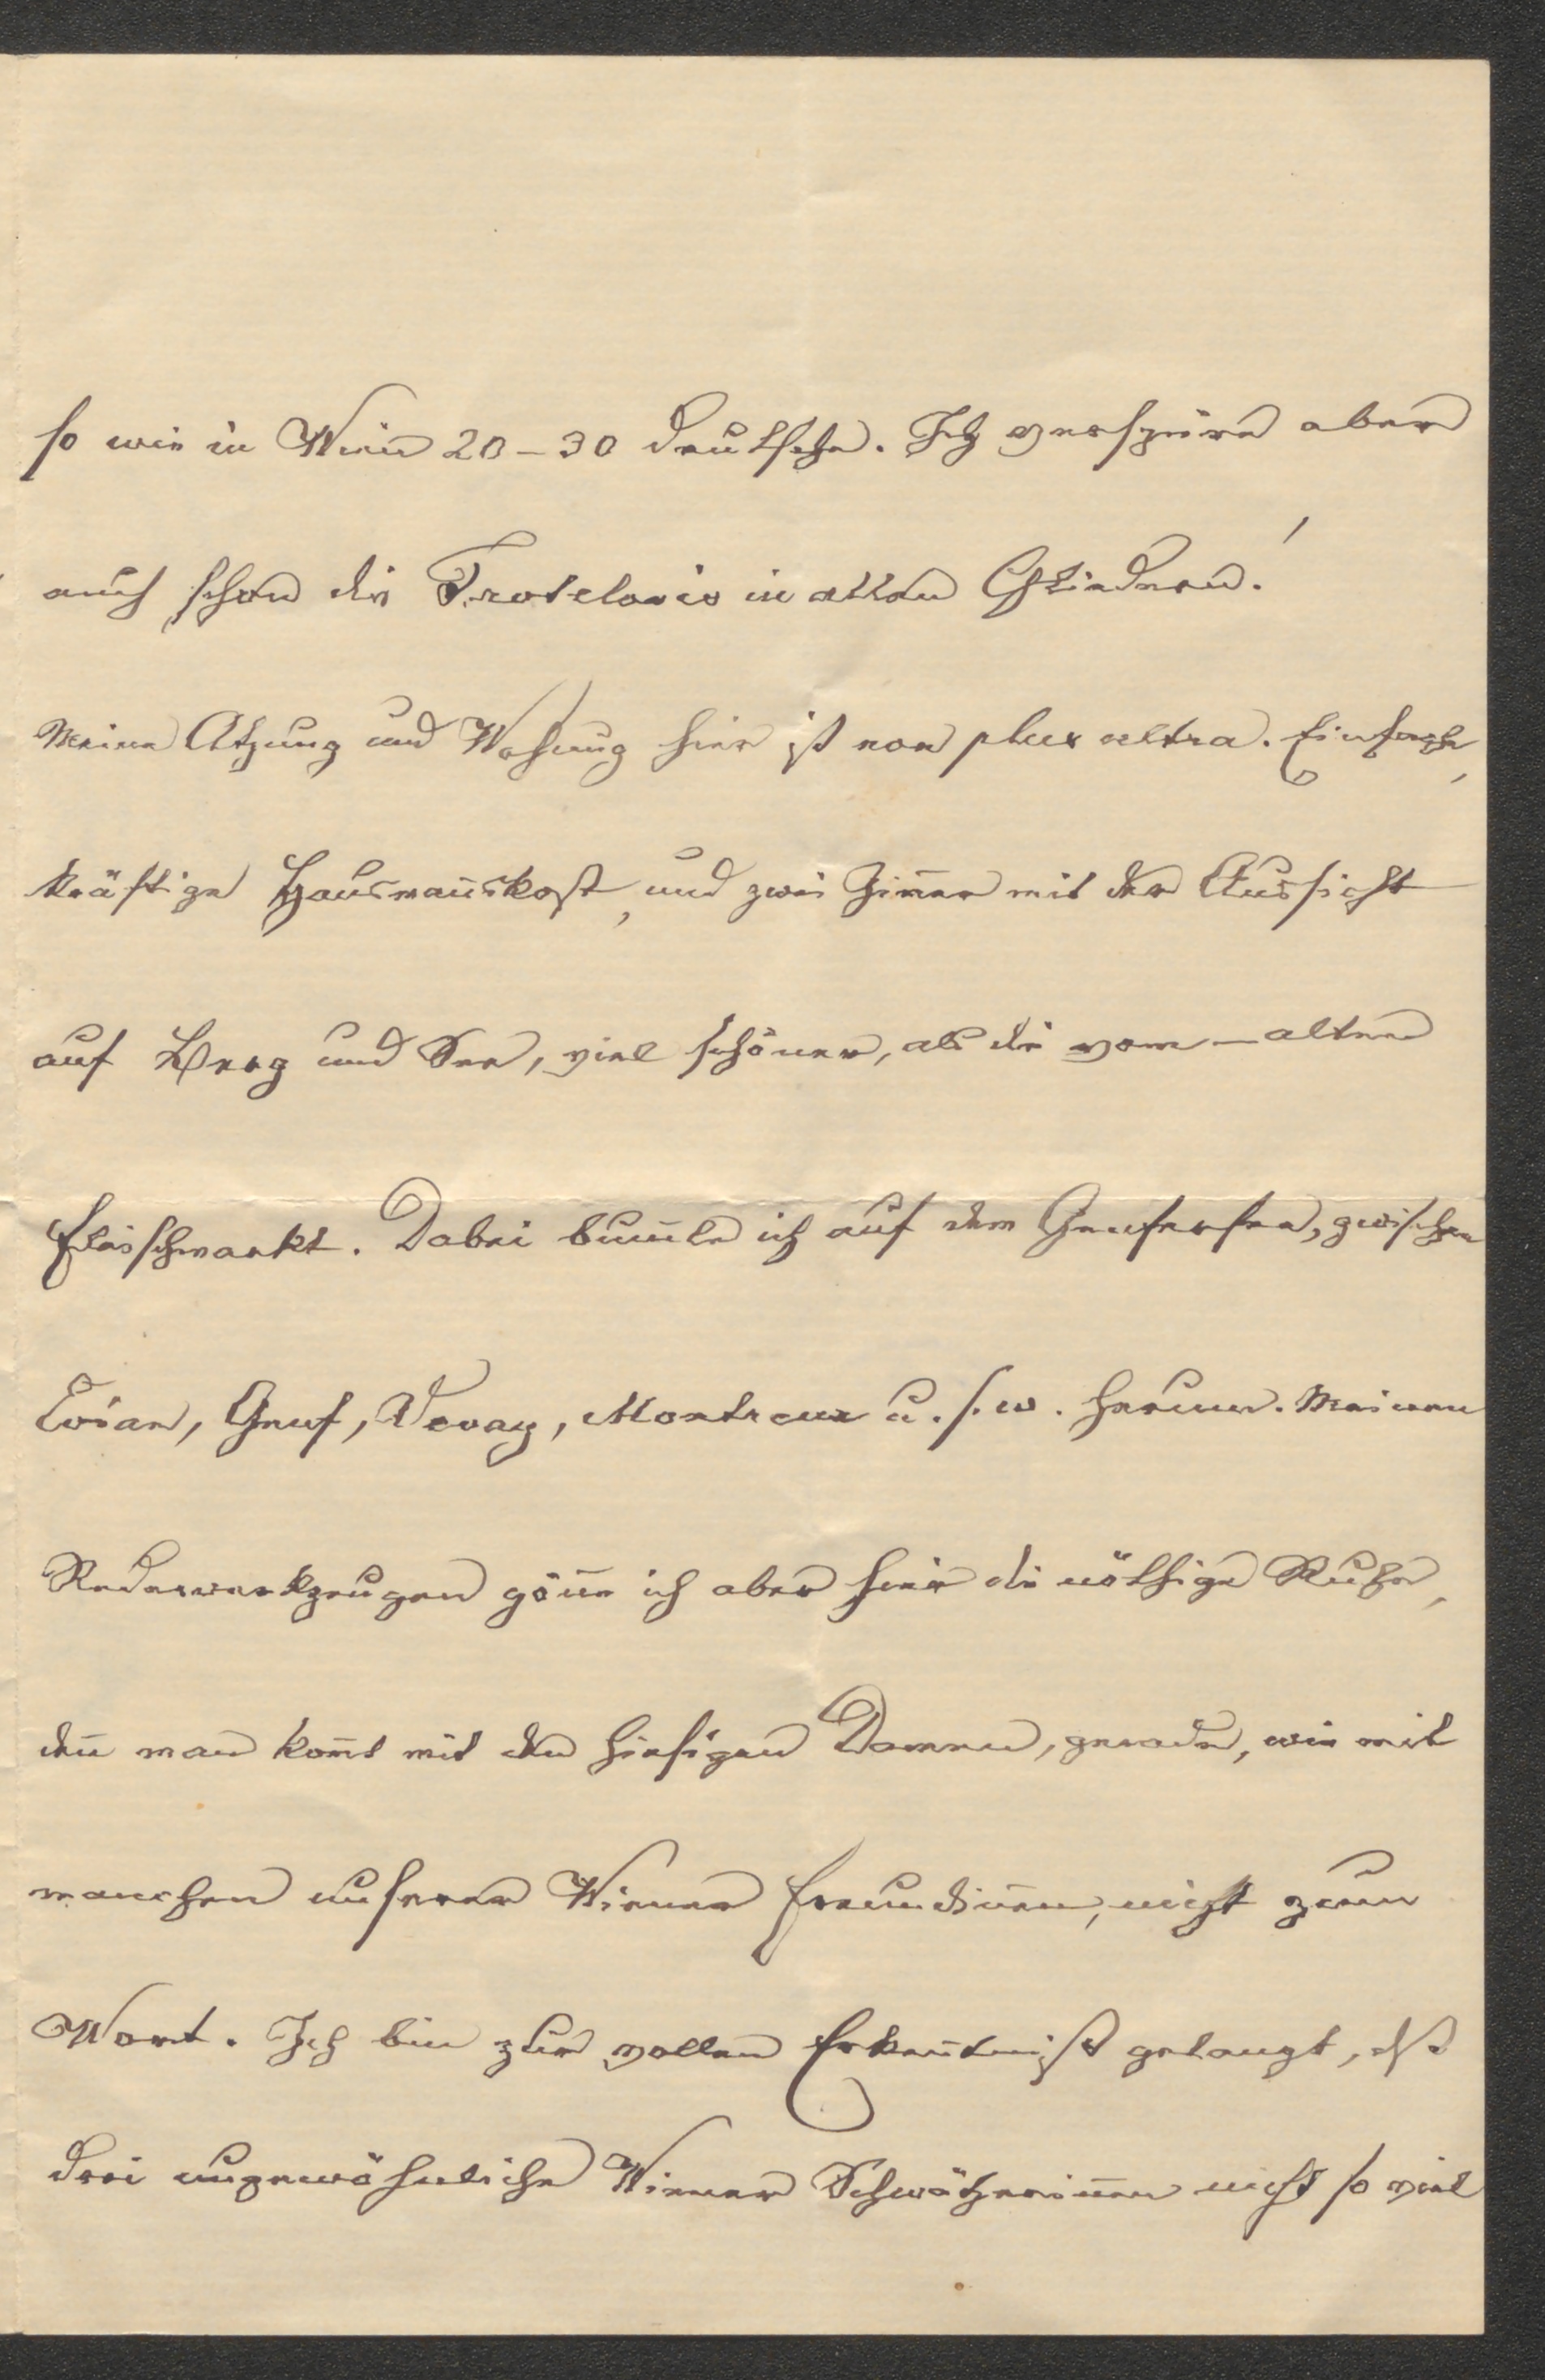 so wie in Wien 20–30 deutsche. Ich verspüre aber
auch schon die Trotelosis in allen Gliedern!
Meine Atzung und Wohung hier ist non plus ultra. Einfache,
kräftige Hausmañskost, und zwei Zim̄er mit der Aussicht
auf Berg und See, viel schöner, als die vom – alten
Fleischmarkt. Dabei bum̄le ich auf dem Genfersee, zwischen
Evian, Genf, Vevay, Montreux u. s. w. herum. Meinen
Redewerkzeugen göñe ich aber hier die nöthige Ruhe,
deñ man kom̄t mit den hiesigen Damen, gerade, wie mit
manchen unserer Wiener Freundiñen, nicht zum
Wort. Ich bin zur vollen Erkeñtniß gelangt, dß
drei ungewöhnliche Wiener Schwätzeriñen nicht so viel